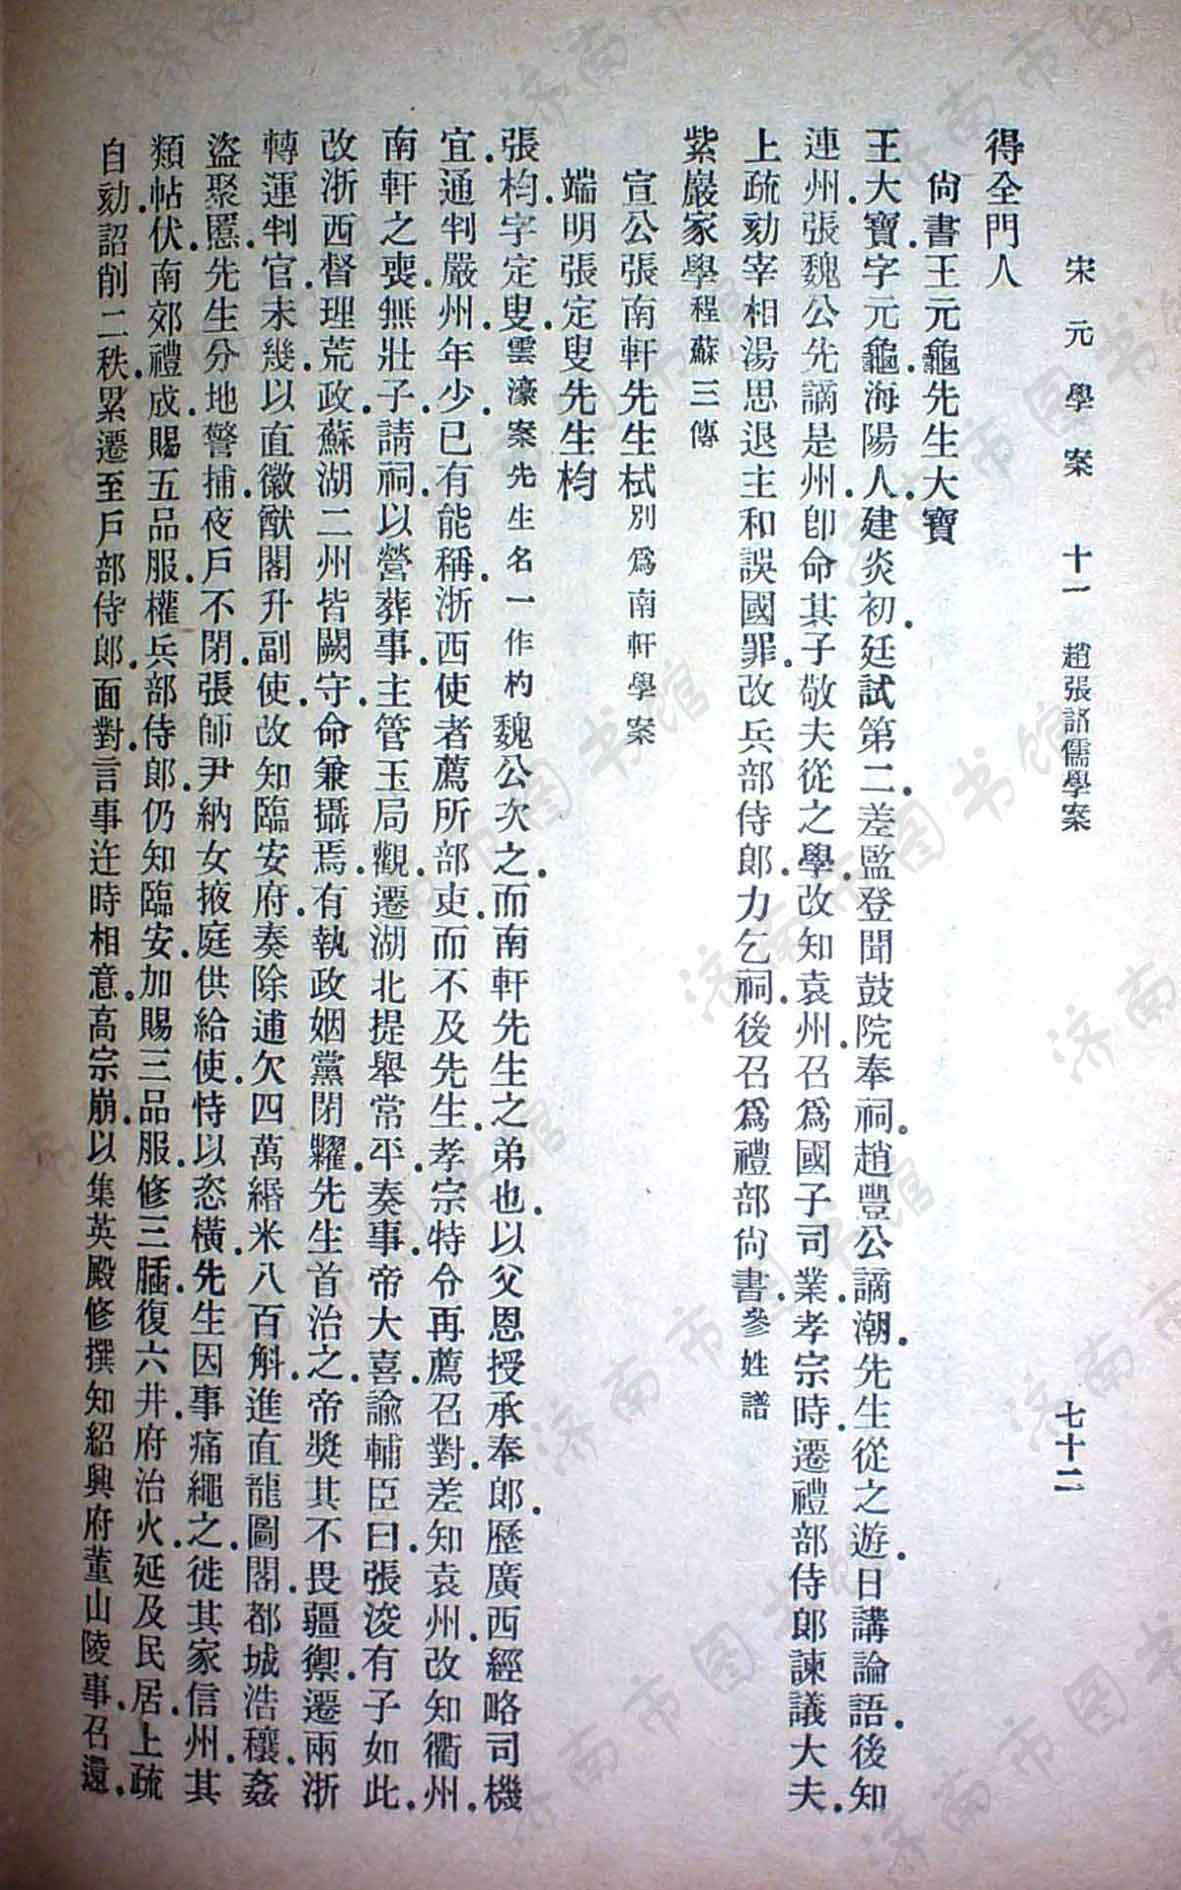 宋元學案 十一 趙張諸儒學案 七十二
得全門人
尚書王元龜先生大寶
王大寶字元龜海陽人建炎初廷試第二差監登聞鼓院奉祠趙豐公謫潮先生從之遊日講論語後知
連州張魏公先謫是州卽命其子敬夫從之學改知袁州召爲國子司業孝宗時遷禮部侍郎諫議大夫
上疏劾宰相湯思退主和誤國罪改兵部侍郎力乞祠後召爲禮部尚書參姓譜
紫巖家學程蘇三傳
宣公張南軒先生栻別爲南軒學案
端明張定叟先生枃
張枃字定叟雲濠案先生名一作杓魏公次之而南軒先生之弟也以父恩授承奉郎歷廣西經略司機
宜通判嚴州年少已有能稱浙西使者薦所部吏而不及先生孝宗特令再薦召對差知袁州改知衢州
南軒之喪無壯子請祠以營葬事主管玉局觀遷湖北提舉常平奏事帝大喜諭輔臣曰張浚有子如此
改浙西督理荒政蘇湖二州皆闕守命兼攝焉有執政姻黨閉糶先生首治之帝獎其不畏疆禦遷兩浙
轉運判官未幾以直徽猷閣升副使改知臨安府奏除逋欠四萬緡米八百斛進直龍圖閣都城浩穰姦
盜聚慝先生分地警捕夜戶不閉張師尹納女掖庭供給使恃以恣橫先生因事痛繩之徙其家信州其
類帖伏南郊禮成賜五品服權兵部侍郎仍知臨安加賜三品服修三牐復六井府治火延及民居上疏
自劾詔削二秩累遷至戶部侍郎面對言事迕時相意高宗崩以集英殿修撰知紹興府董山陵事召還